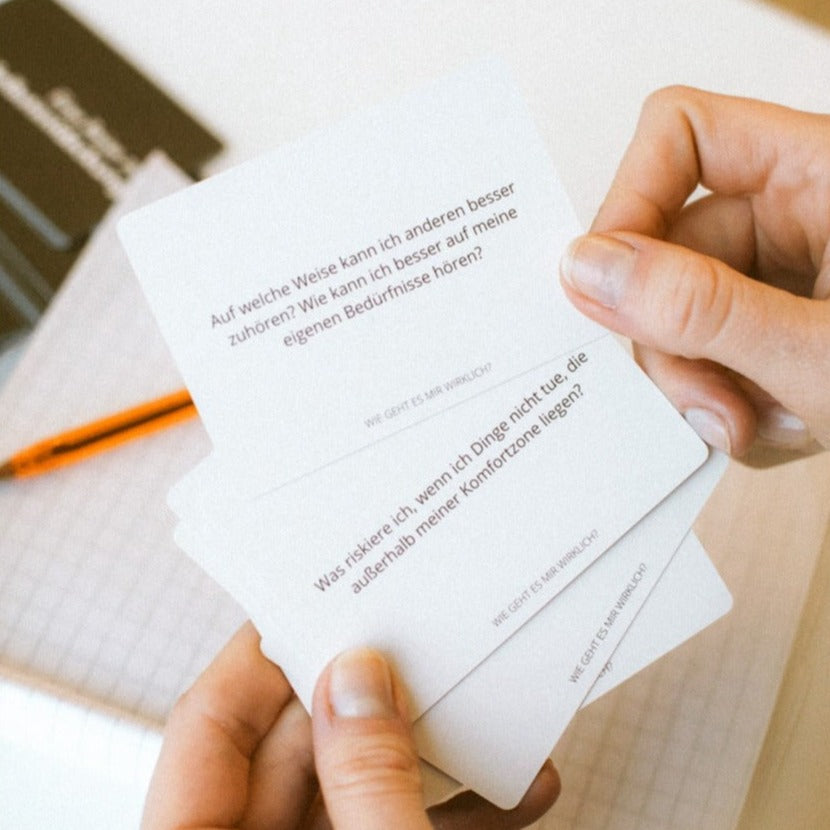 Auf welche Weise kann ich anderen besser
zuhören? Wie kann ich besser auf meine
eigenen Bedürfnisse hören?
WIE GEHT ES MIR WIRKLICH?
Was riskiere ich, wenn ich Dinge nicht tue, die
außerhalb meiner Komfortzone liegen?
WIE GEHT ES MIR WIRKLICH?
WIE GEHT ES MIR WIRKLICH?